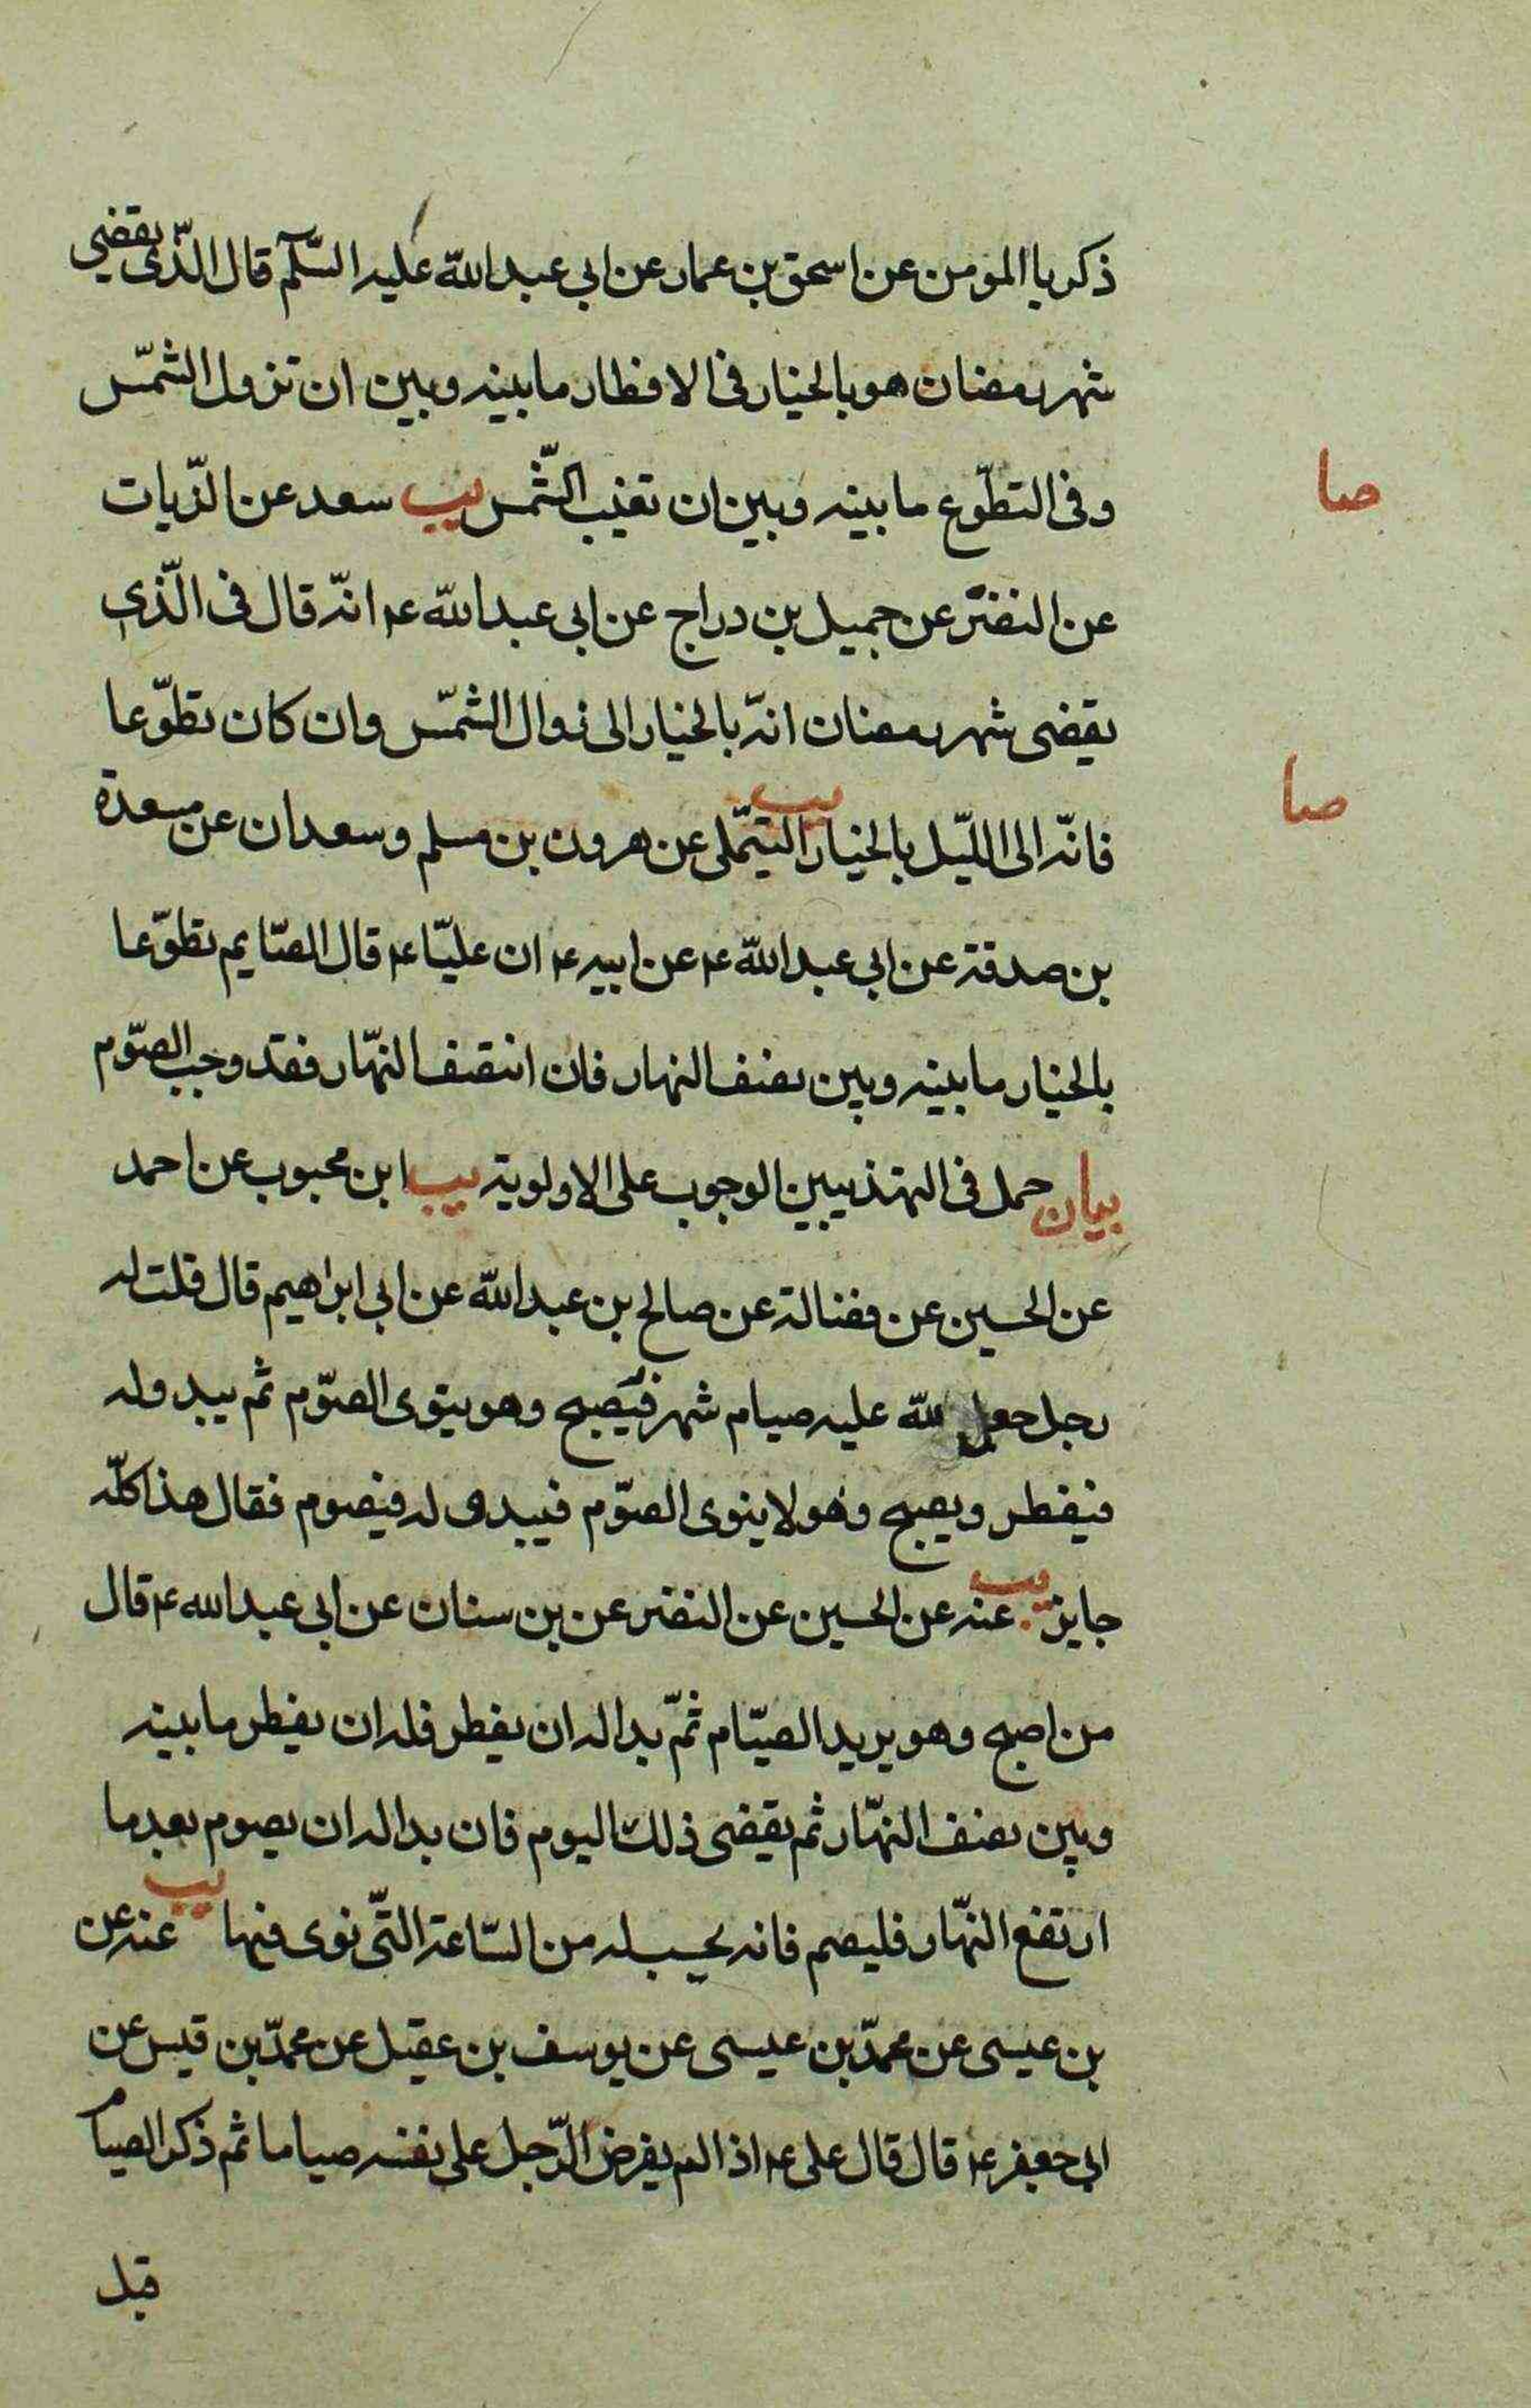 ذكريا المومن عن اسحق بن عمار عن ابي عبد الله عليه السّلم قال الذّى يقضي
شهر رمضان هو بالخيار فى الافطار ما بينه وبين ان تزول الشمّس
وفى التطوّع ما بينه وبين ان تغيب الشّمس يب سعد عن الزّيات
صا
عن النضر عن جميل بن دراج عن ابي عبد الله ع انّه قال فى الّذى
يقضى شهر رمضان انّه بالخيار الى زوال الشمّس وان كان تطوّعا
فانّه الى الليّل بالخيار يب التيّملى عن هرون بن مسلم وسعدان عن مسعدة
صا
بن صدقة عن ابي عبد الله ع عن ابيه ع ان عليّا ع قال الصّايم تطوّعا
بالخيار ما بينه وبين نصف النهار فان انتصف النهّار فقد وجب الصوّم
بيان حمل فى التهذيبين الوجوب على الاولوية يب ابن محبوب عن احمد
عن الحسين عن فضالة عن صالح بن عبد الله عن ابي ابراهيم قال قلت له
رجل جعل لله عليه صيام شهر فيصبح وهو ينوى الصوّم ثم يبدو له
فيفطر ويصبح وهو لا ينوى الصوّم فيبدو له فيصوم فقال هذا كلّه
جايز يب عنه عن الحسين عن النضر عن بن سنان عن ابي عبد الله ع قال
من اصبح وهو يريد الصيّام ثمّ بدا له ان يفطر فله ان يفطر ما بينه
وبين نصف النهّار ثم يقضى ذلك اليوم فان بدا له ان يصوم بعد ما
ارتفع النهّار فليصم فانه يحسب له من السّاعة التّى نوى فيها يب عنه عن
بن عيسى عن محمّد بن عيسى عن يوسف بن عقيل عن محمّد بن قيس عن
ابي جعفر ع قال قال على ع اذا لم يفرض الرّجل على نفسه صياما ثم ذكر الصيام
قبل